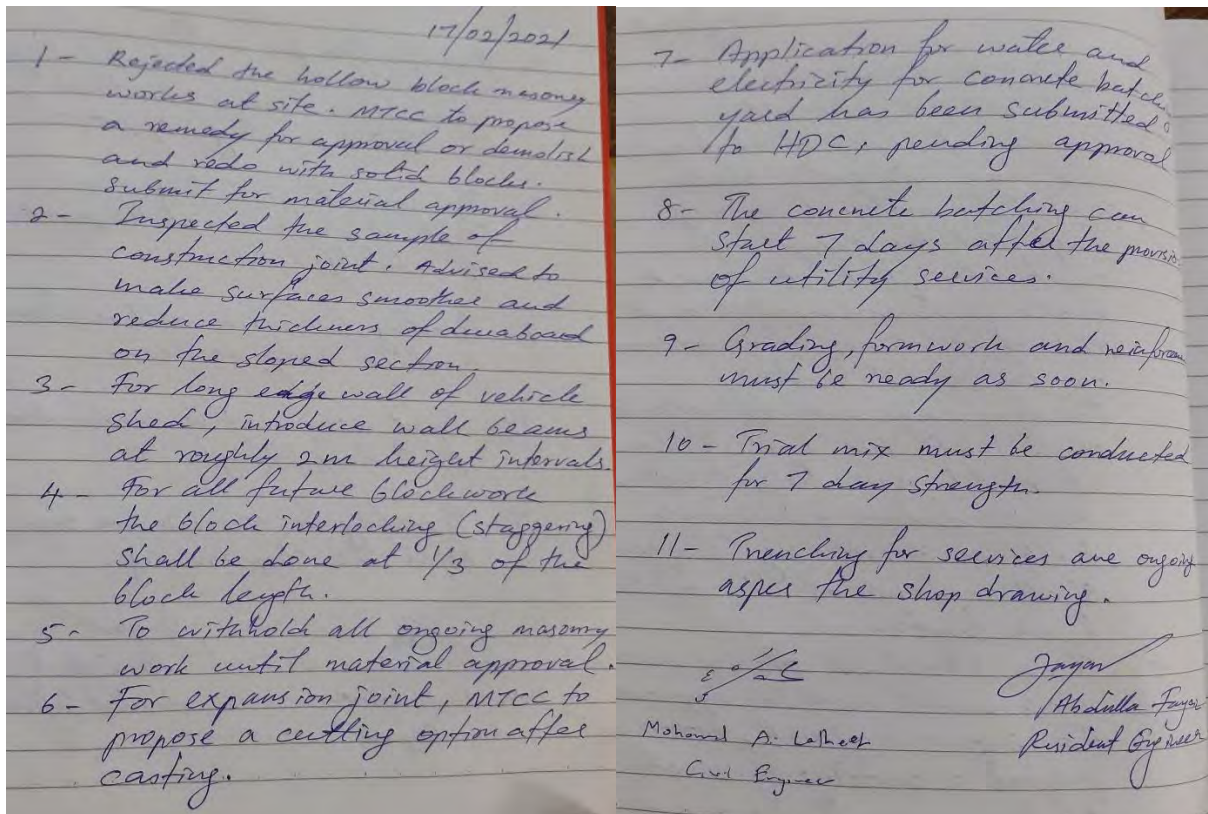 17/02/2021
1- Rejected the hollow block masonry
works at site. MTCC to propose
a remedy for approval or demolish
and redo with solid blocks.
Submit for material approval.
2- Inspected the sample of
construction joint. Advised to
make surfaces smoother and
reduce thickness of duraboard
on the sloped section.
3- For long edge wall of vehicle
shed, introduce wall beams
at roughly 2m height intervals.
4- For all future blockwork
the block interlocking (staggering)
shall be done at 1/3 of the
block length.
5- To withhold all ongoing masonry
work until material approval.
6- For expansion joint, MTCC to
propose a cutting option after
casting.
7- Application for water and
electricity for concrete batching
yard has been submitted
to HDC, pending approval
8- The concrete batching can
start 7 days after the provision
of utility services.
9- Grading, formwork and reinforcem
must be ready as soon.
10- Trial mix must be conducted
for 7 day strength.
11- Trenching for services are ongoing
asper the shop drawing.
Mohamed A. Latheef
Civil Engineer
Abdulla Fayaz
Resident Engineer